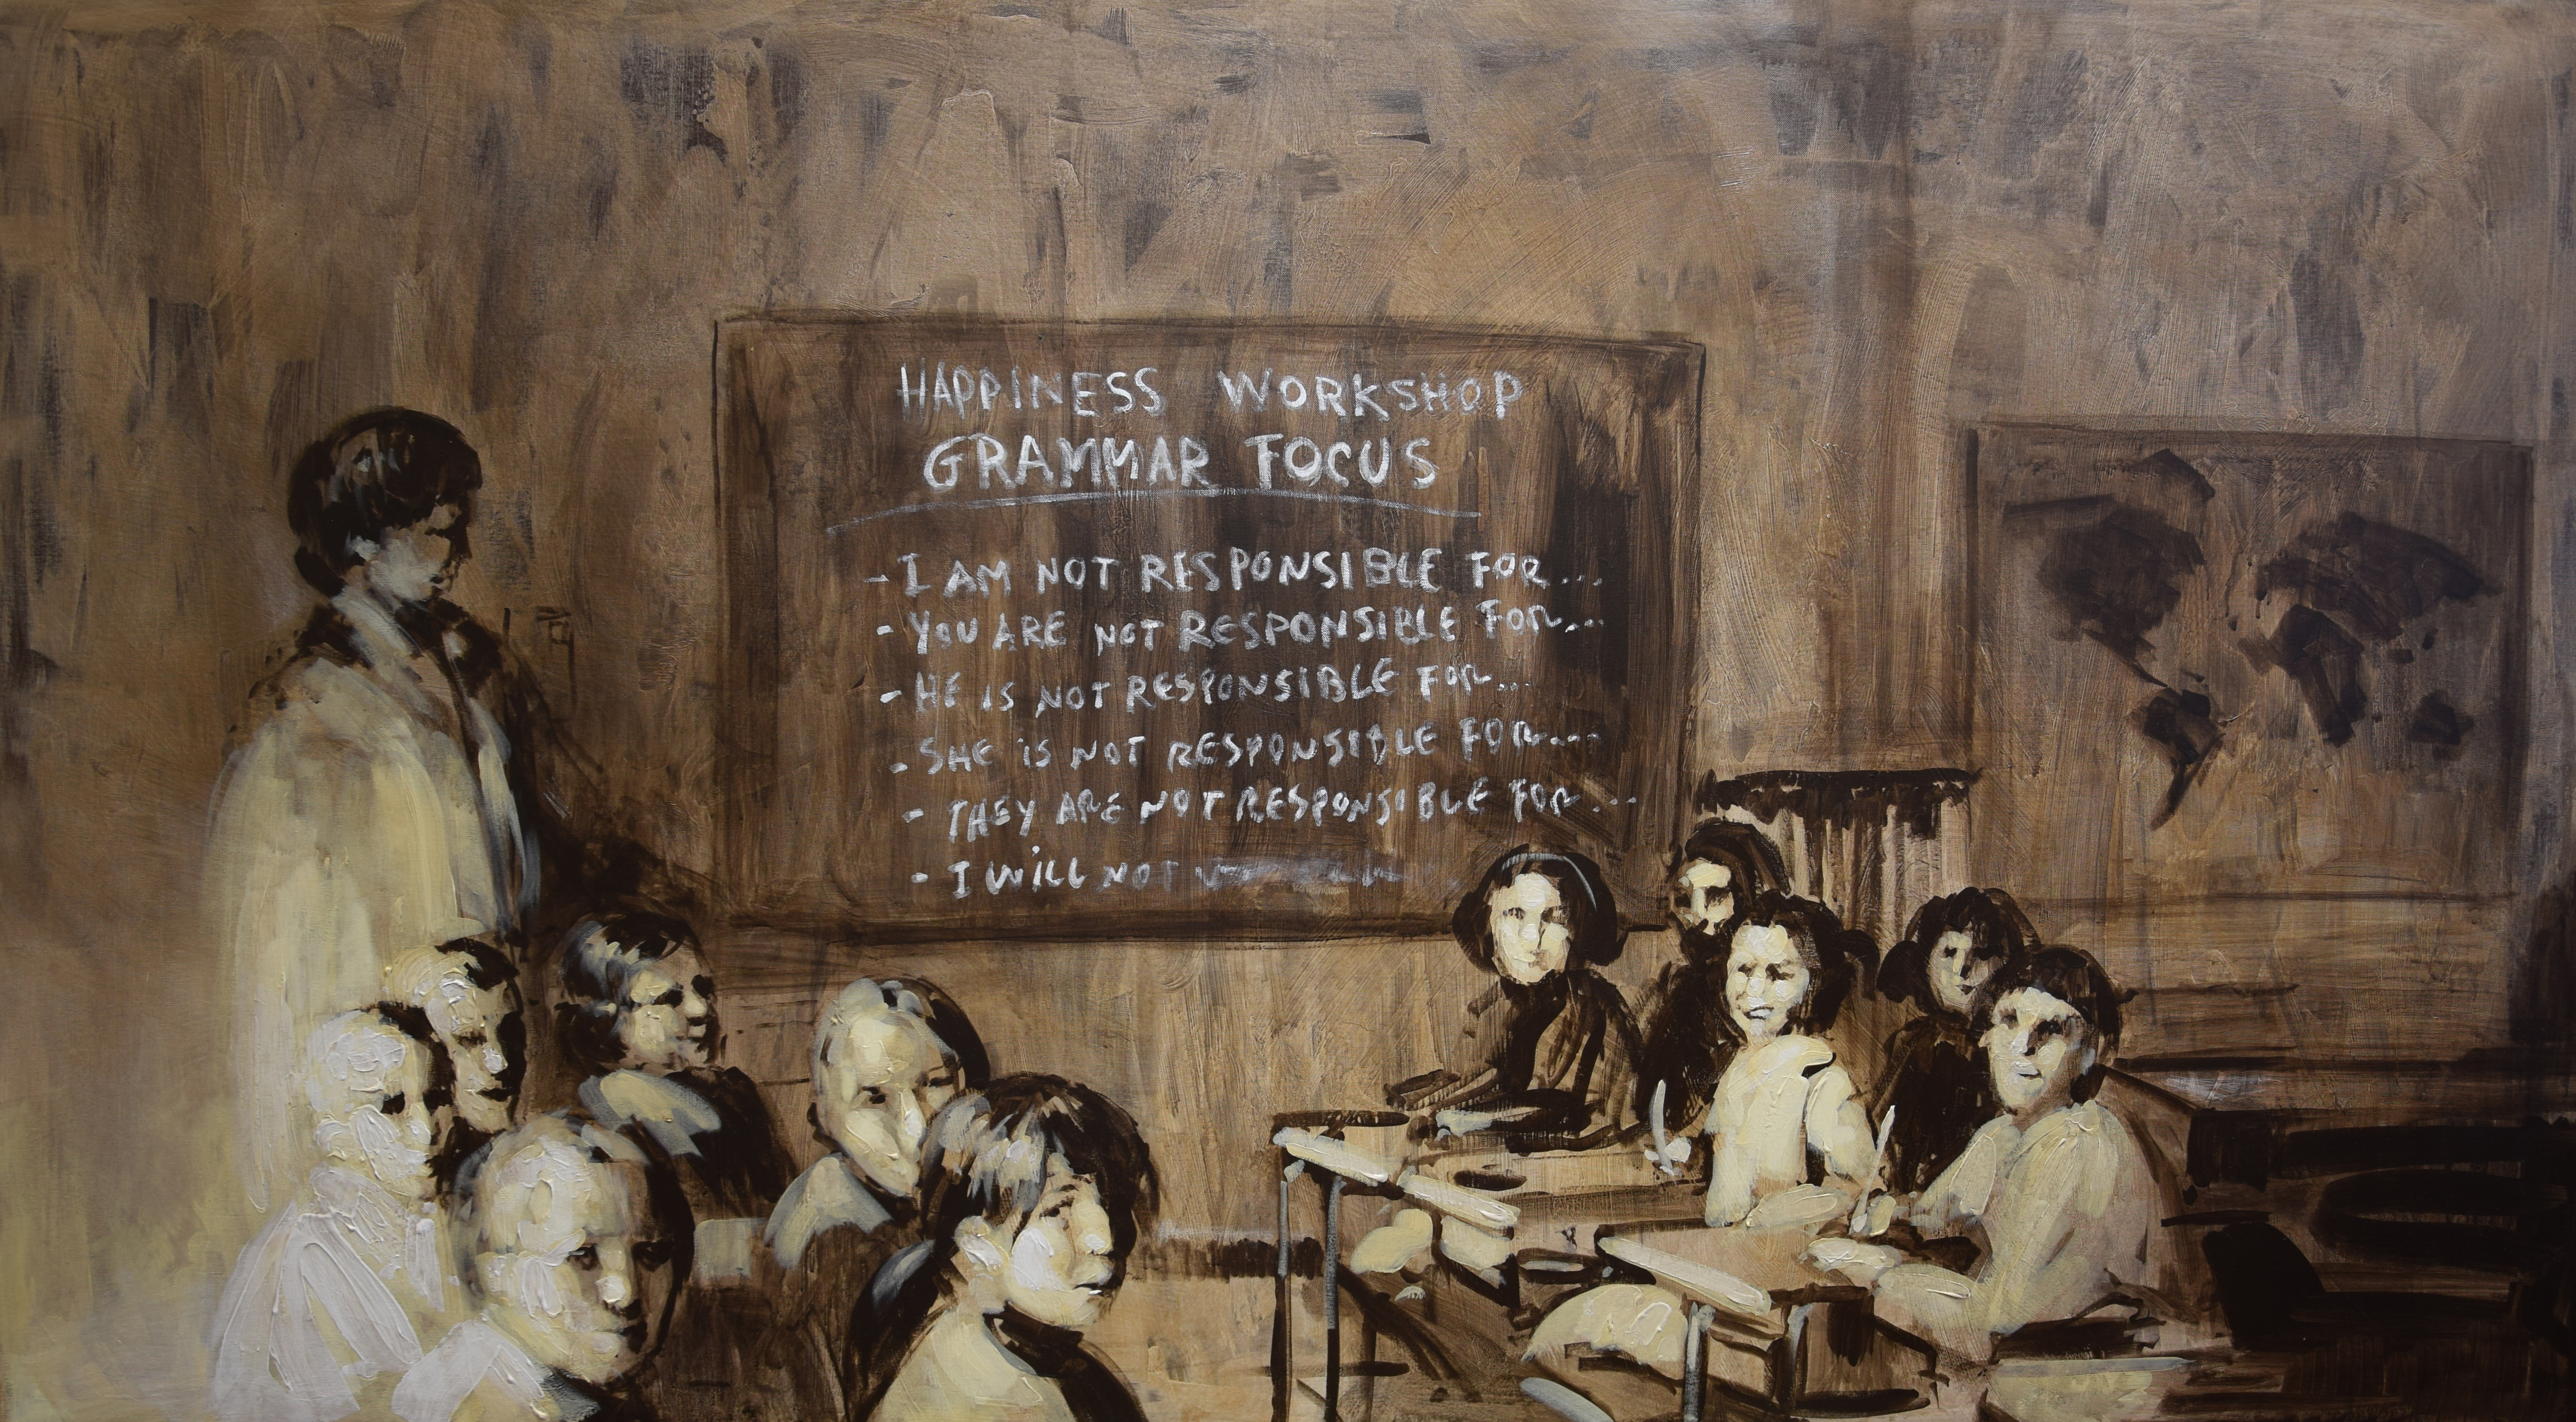 HAPPINESS WORKSHOP
GRAMMAR FOCUS
- I AM NOT RESPONSIBLE FOR...
- YOU ARE NOT RESPONSIBLE FOR...
- HE IS NOT RESPONSIBLE FOR...
- SHE IS NOT RESPONSIBLE FOR...
- THEY ARE NOT RESPONSIBLE FOR...
- I WILL NOT